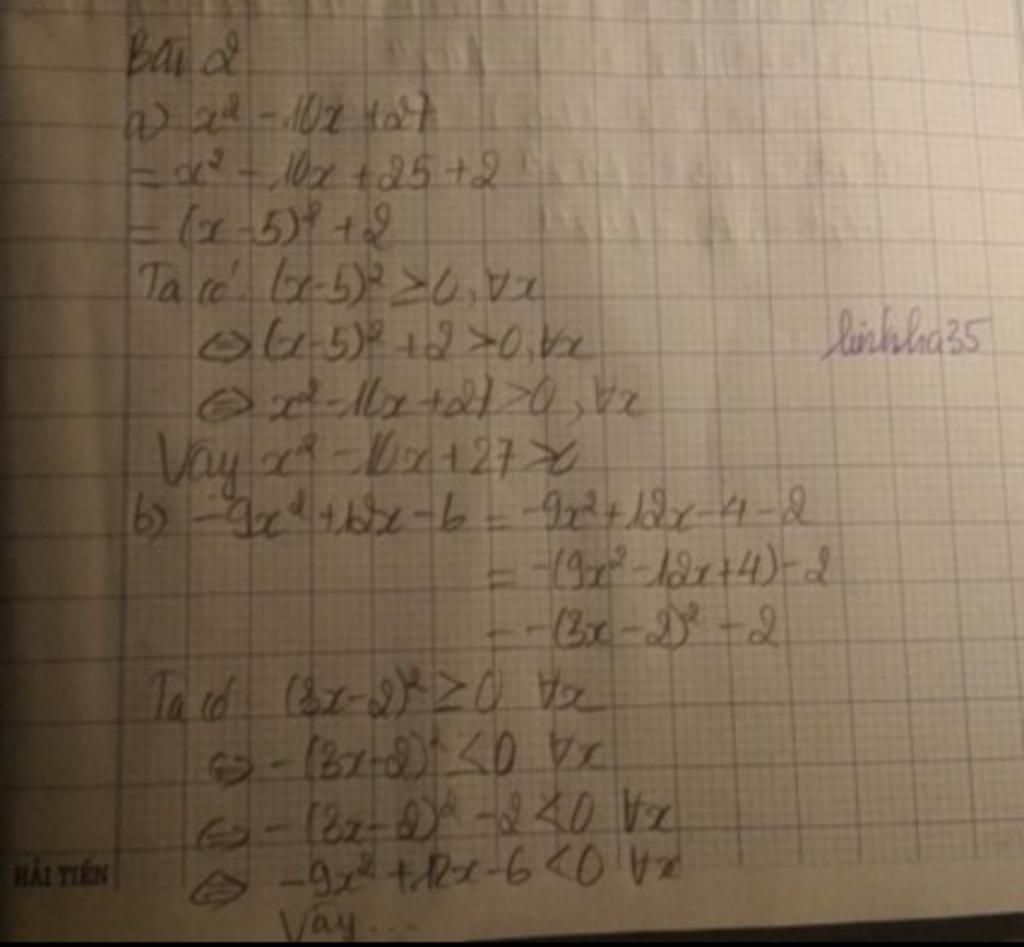 Bài 2
a) x² - 10x + 27
= x² - 10x + 25 + 2
= (x - 5)² + 2
Ta có: (x-5)² ≥ 0, ∀x
⇔ (x-5)² + 2 > 0, ∀x
linhha35
⇔ x² - 10x + 27 > 0, ∀x
Vậy x² - 10x + 27 >
b) -9x² + 12x - 6 = -9x² + 12x - 4 - 2
= -(9x² - 12x + 4) - 2
= -(3x - 2)² - 2
Ta có (3x - 2)² ≥ 0 ∀x
⇔ -(3x - 2)² ≤ 0 ∀x
⇔ -(3x - 2)² - 2 < 0 ∀x
⇔ -9x² + 12x - 6 < 0 ∀x
Vậy...
HẢI TIẾN